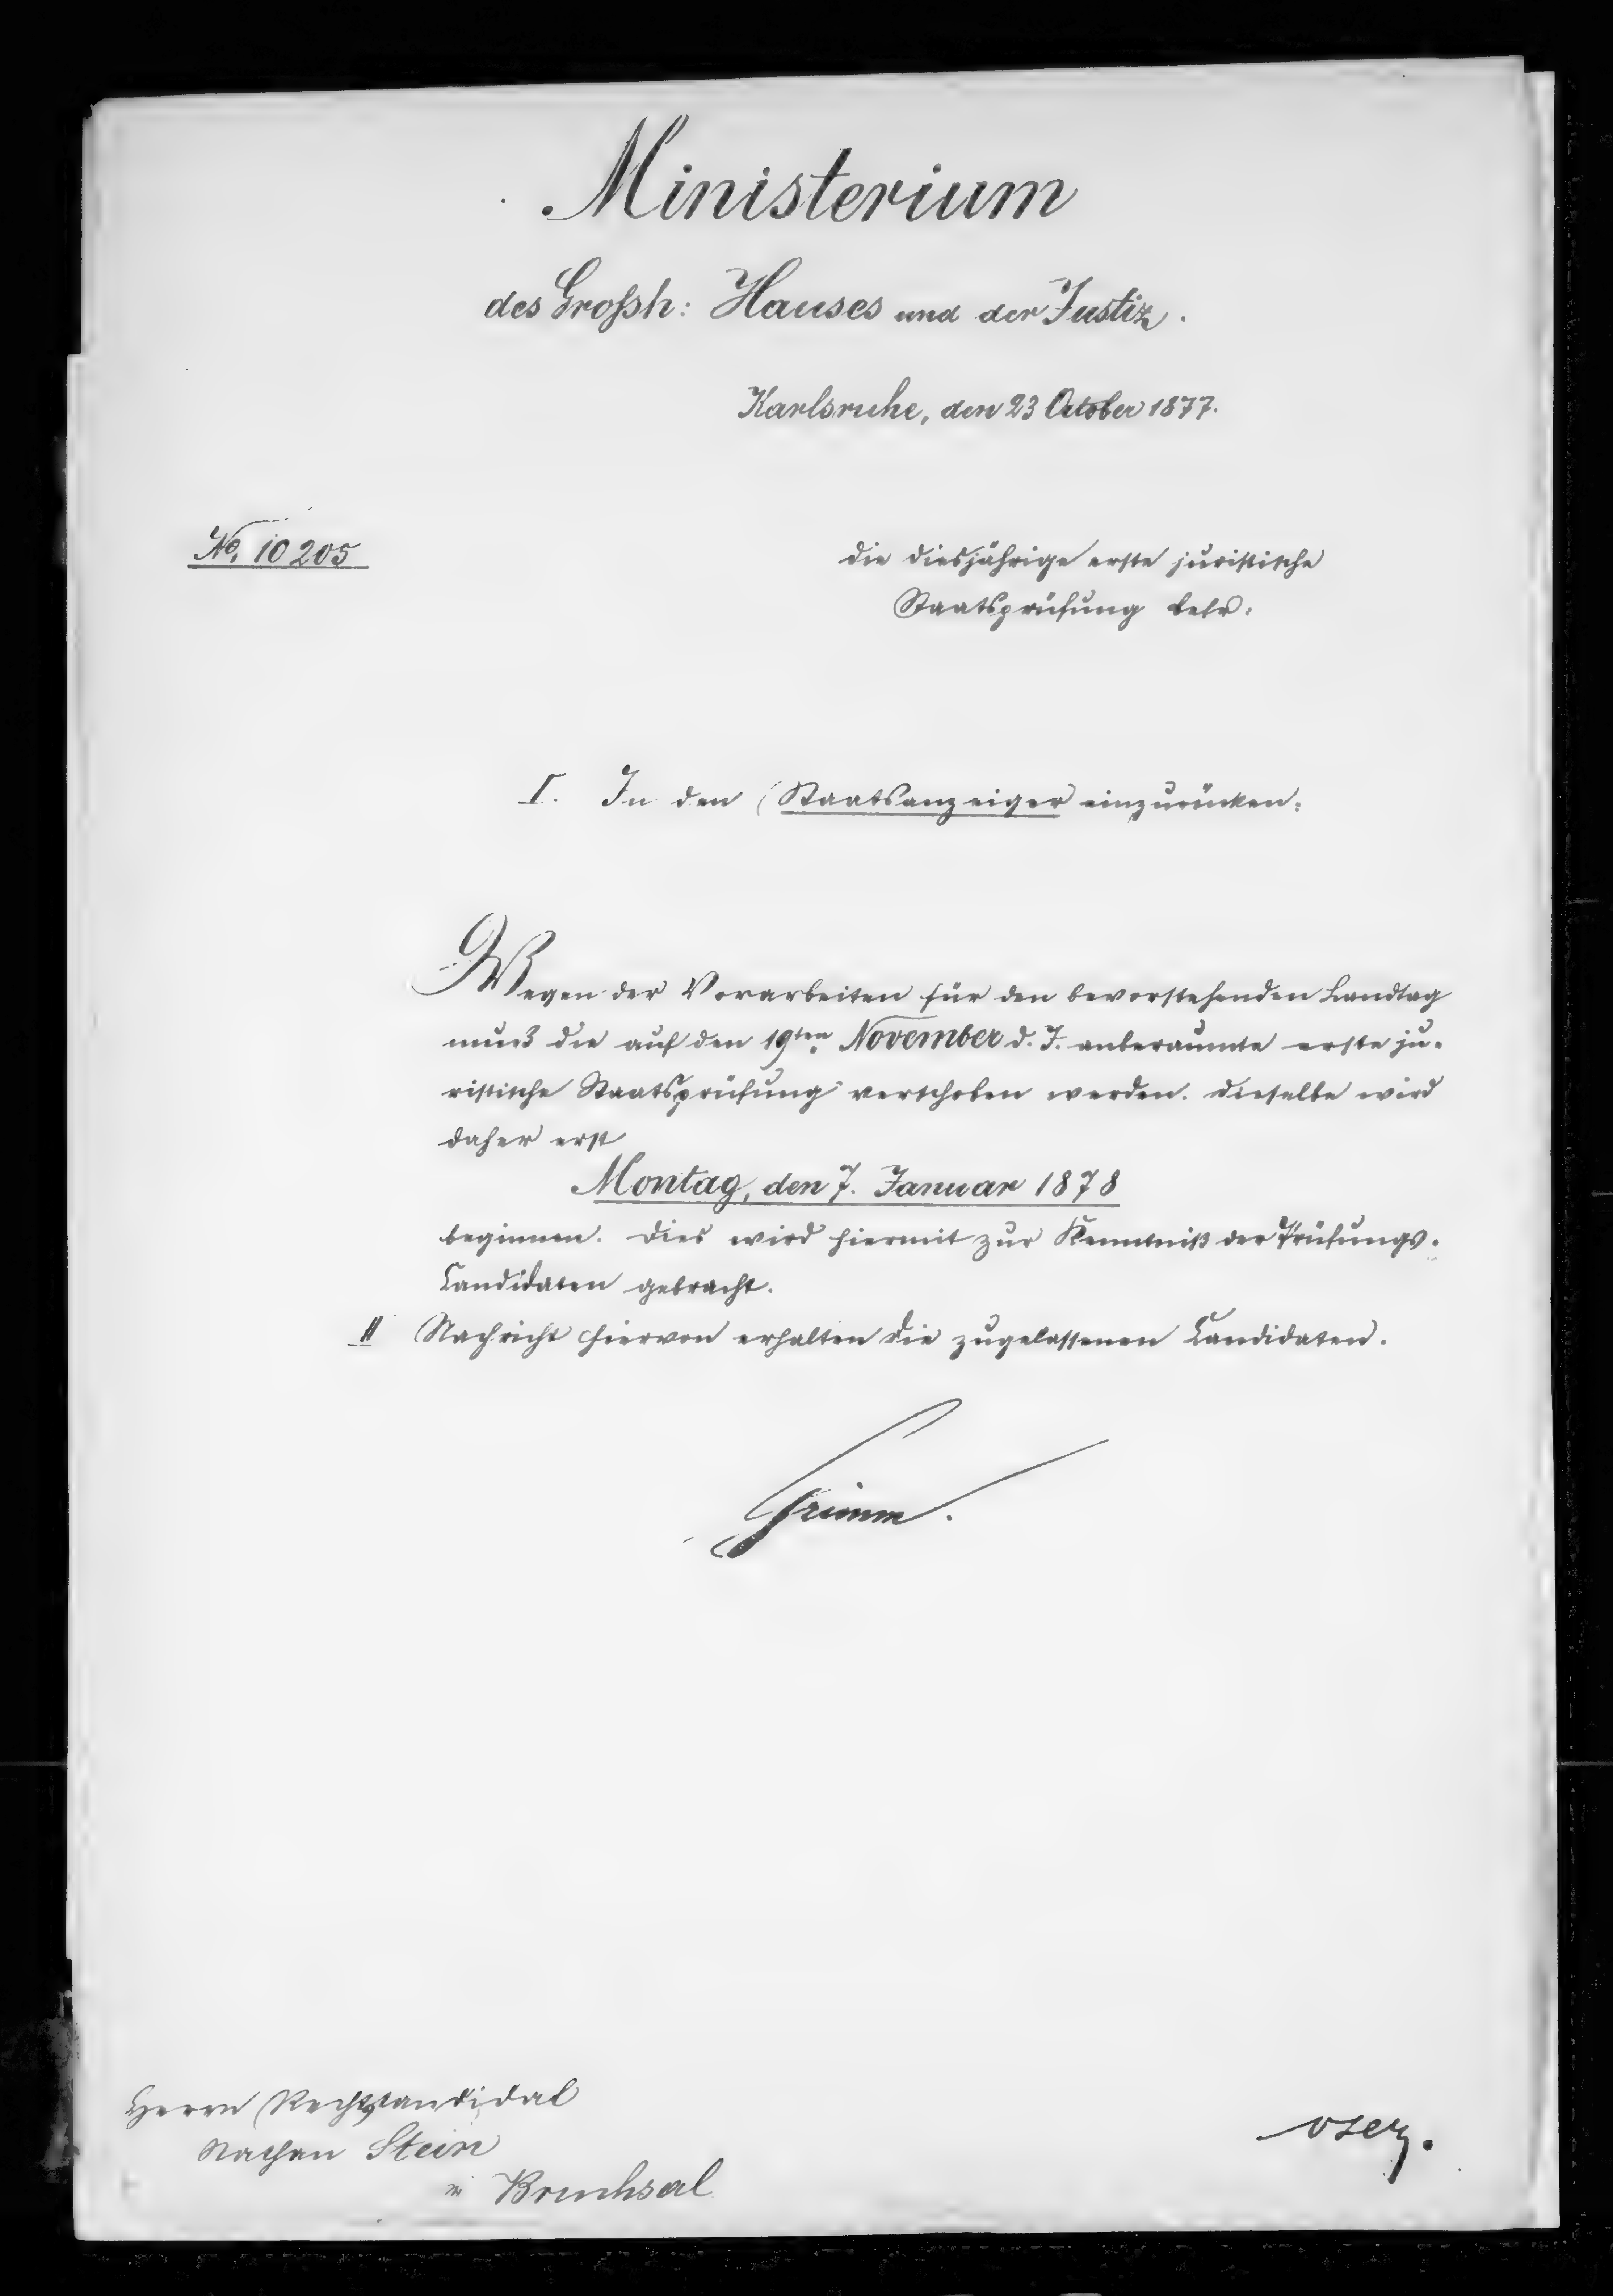 Ministerium
des Großh: Hauses und der Justiz.
Karlsruhe, den 23 October 1877.
No. 10205
die diesjährige erste juristische
Staatsprüfung betr:
I. In den Staatsanzeiger einzurücken:
Wegen der Vorarbeiten für den bevorstehenden Landtag
muß die auf den 19ten November d. J. anberaumte erste ju-
ristische Staatsprüfung verschoben werden. Dieselbe wird
daher erst
Montag, den 7. Januar 1878
beginnen. Dies wird hiermit zur Kenntniß der Prüfungs-
Candidaten gebracht.
II Nachricht hiervon erhalten die zugelassenen Candidaten.
Grimm.
Herrn Rechtskandidat
Nathan Stein
in Bruchsal